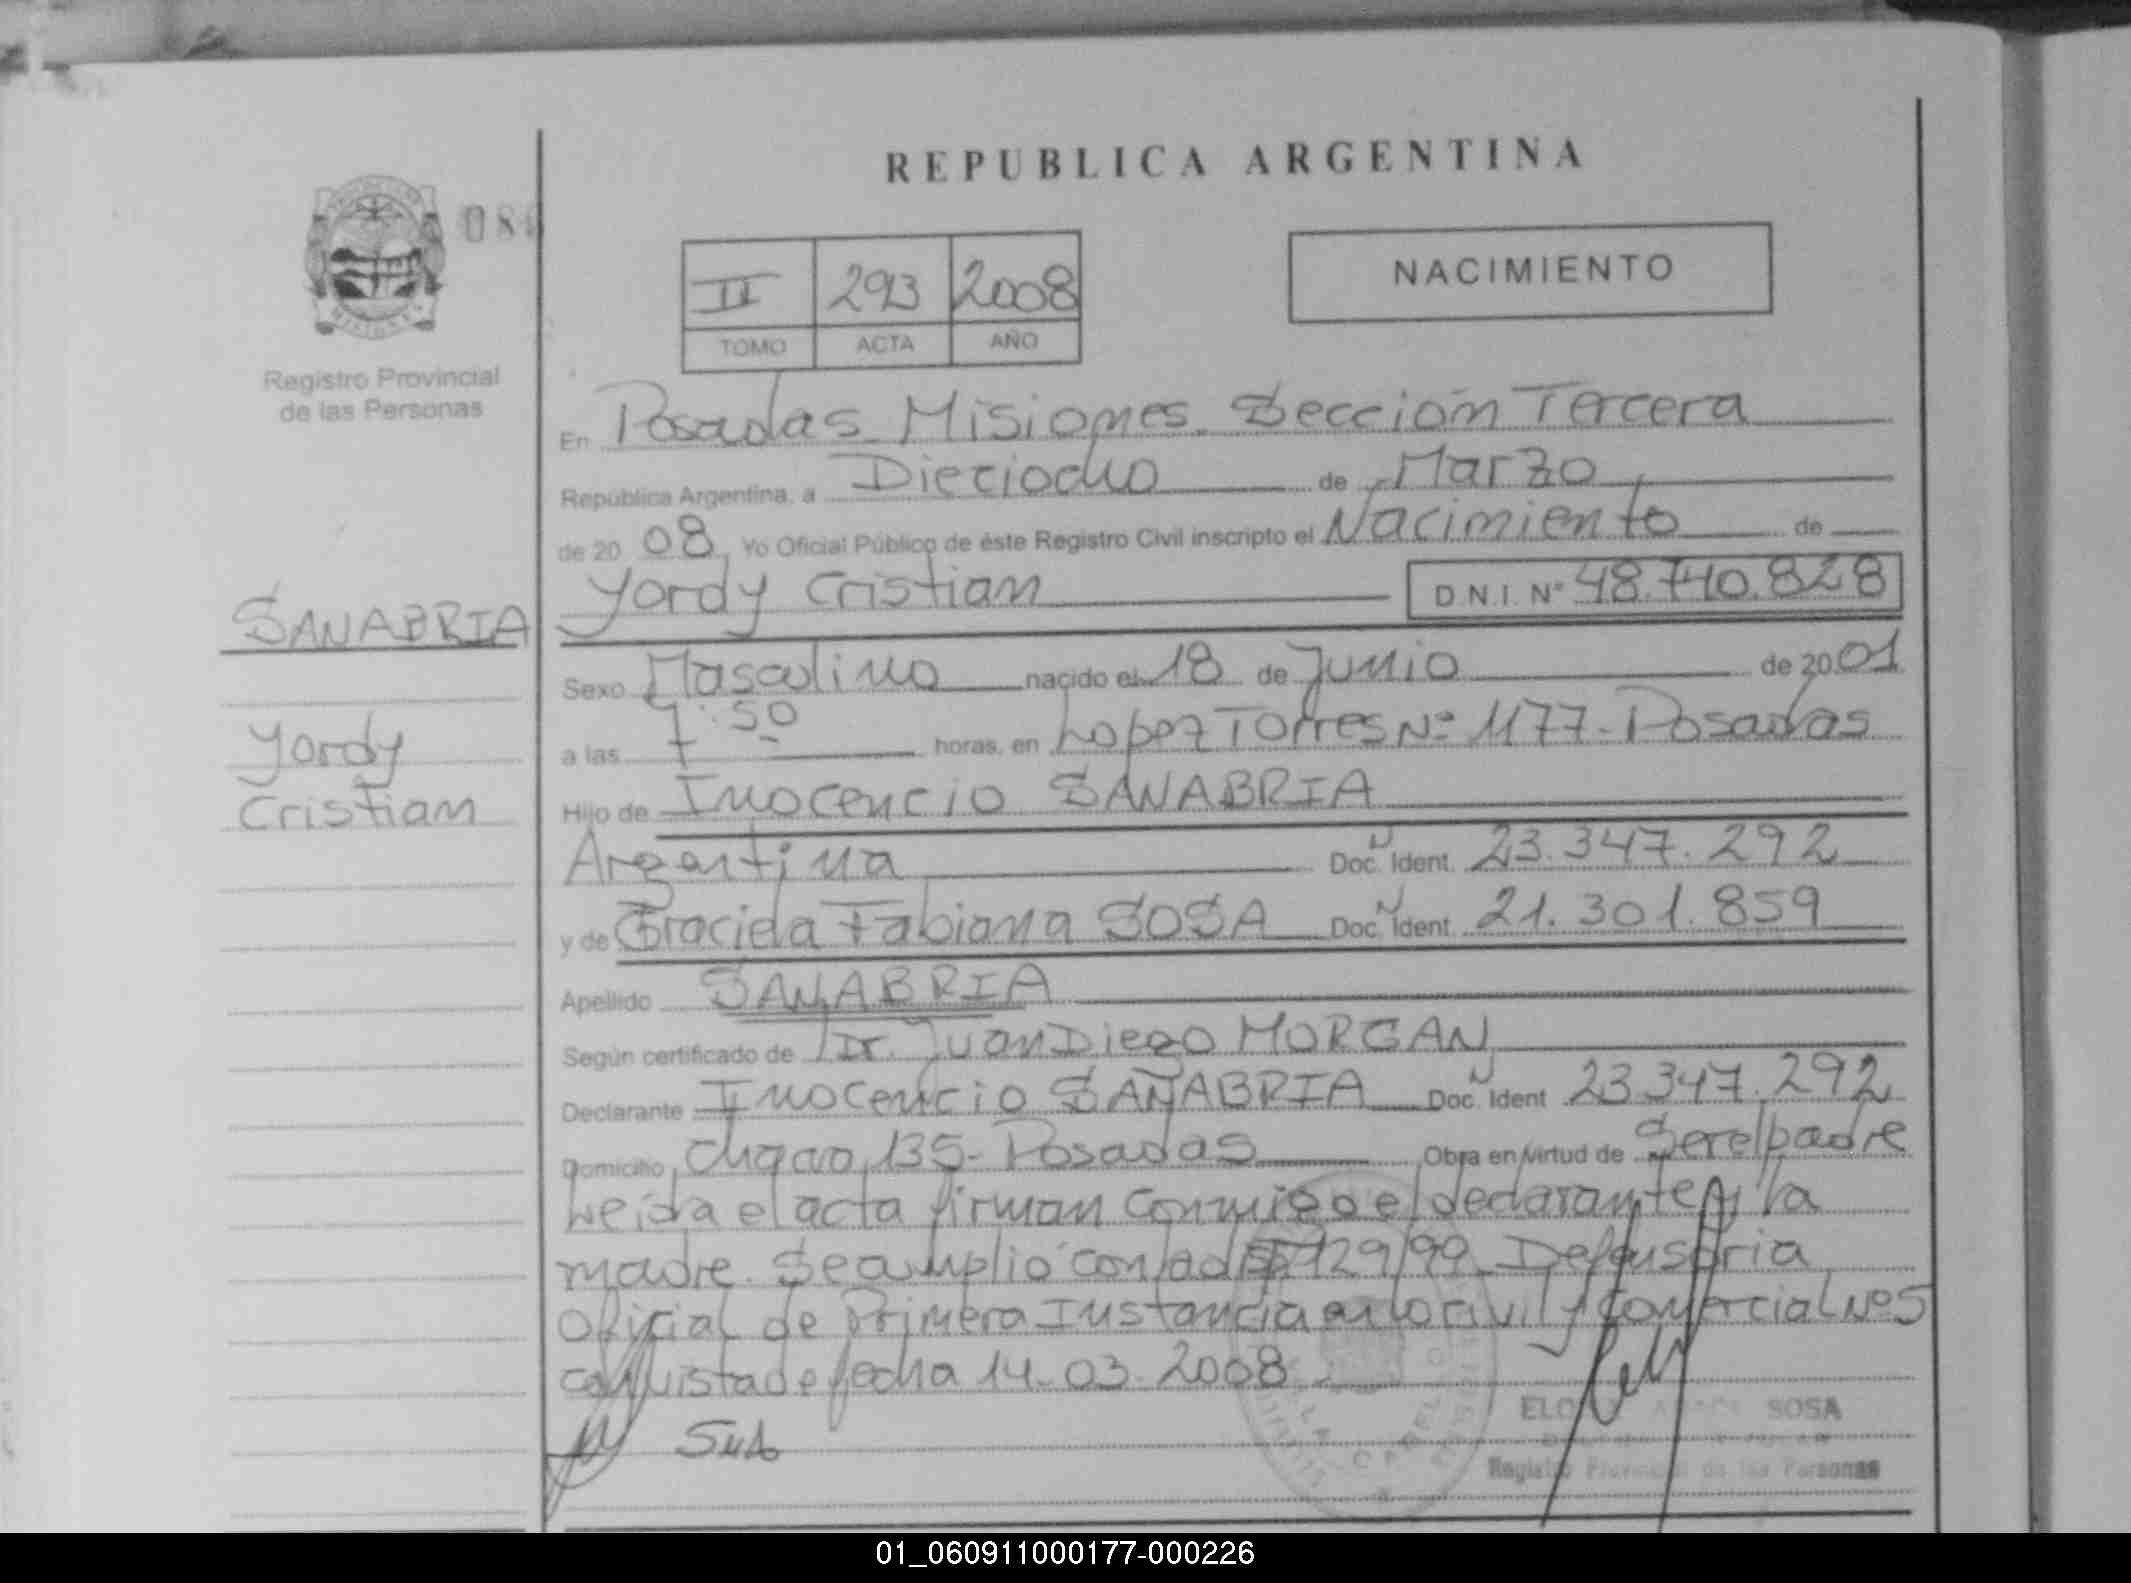 REPUBLICA ARGENTINA
08
II 293 2008
TOMO ACTA AÑO
NACIMIENTO
Registro Provincial
de las Personas
En Posadas Misiones Sección Tercera
República Argentina, a Dieciocho de Marzo
de 20 08 Yo Oficial Público de éste Registro Civil inscripto el Nacimiento de
Yordy Cristian D.N.I. Nº 48.740.828
SANABRIA
Yordy
Cristian
Sexo Masculino nacido el 18 de Junio de 2001
a las 7:50 horas, en Lopez Torres Nº 1177 - Posadas
Hijo de Inocencio SANABRIA
Argentina Doc. Ident. 23.347.292
y de Graciela Fabiana SOSA Doc. Ident. 21.301.859
Apellido SANABRIA
Según certificado de Dr. Juan Diego MORGAN
Declarante Inocencio SANABRIA Doc. Ident 23.347.292
Domicilio 135 - Posadas Obra en virtud de Ser el padre
Leida el acta firman conmigo el declarante y la
madre. Se cumplio con 729/99 Defensoria
Oficial de Primera Instancia en lo civil y Comercial Nº 5
con vista de fecha 14-03-2008
SOSA
Registro Provincial de las Personas
01_060911000177-000226